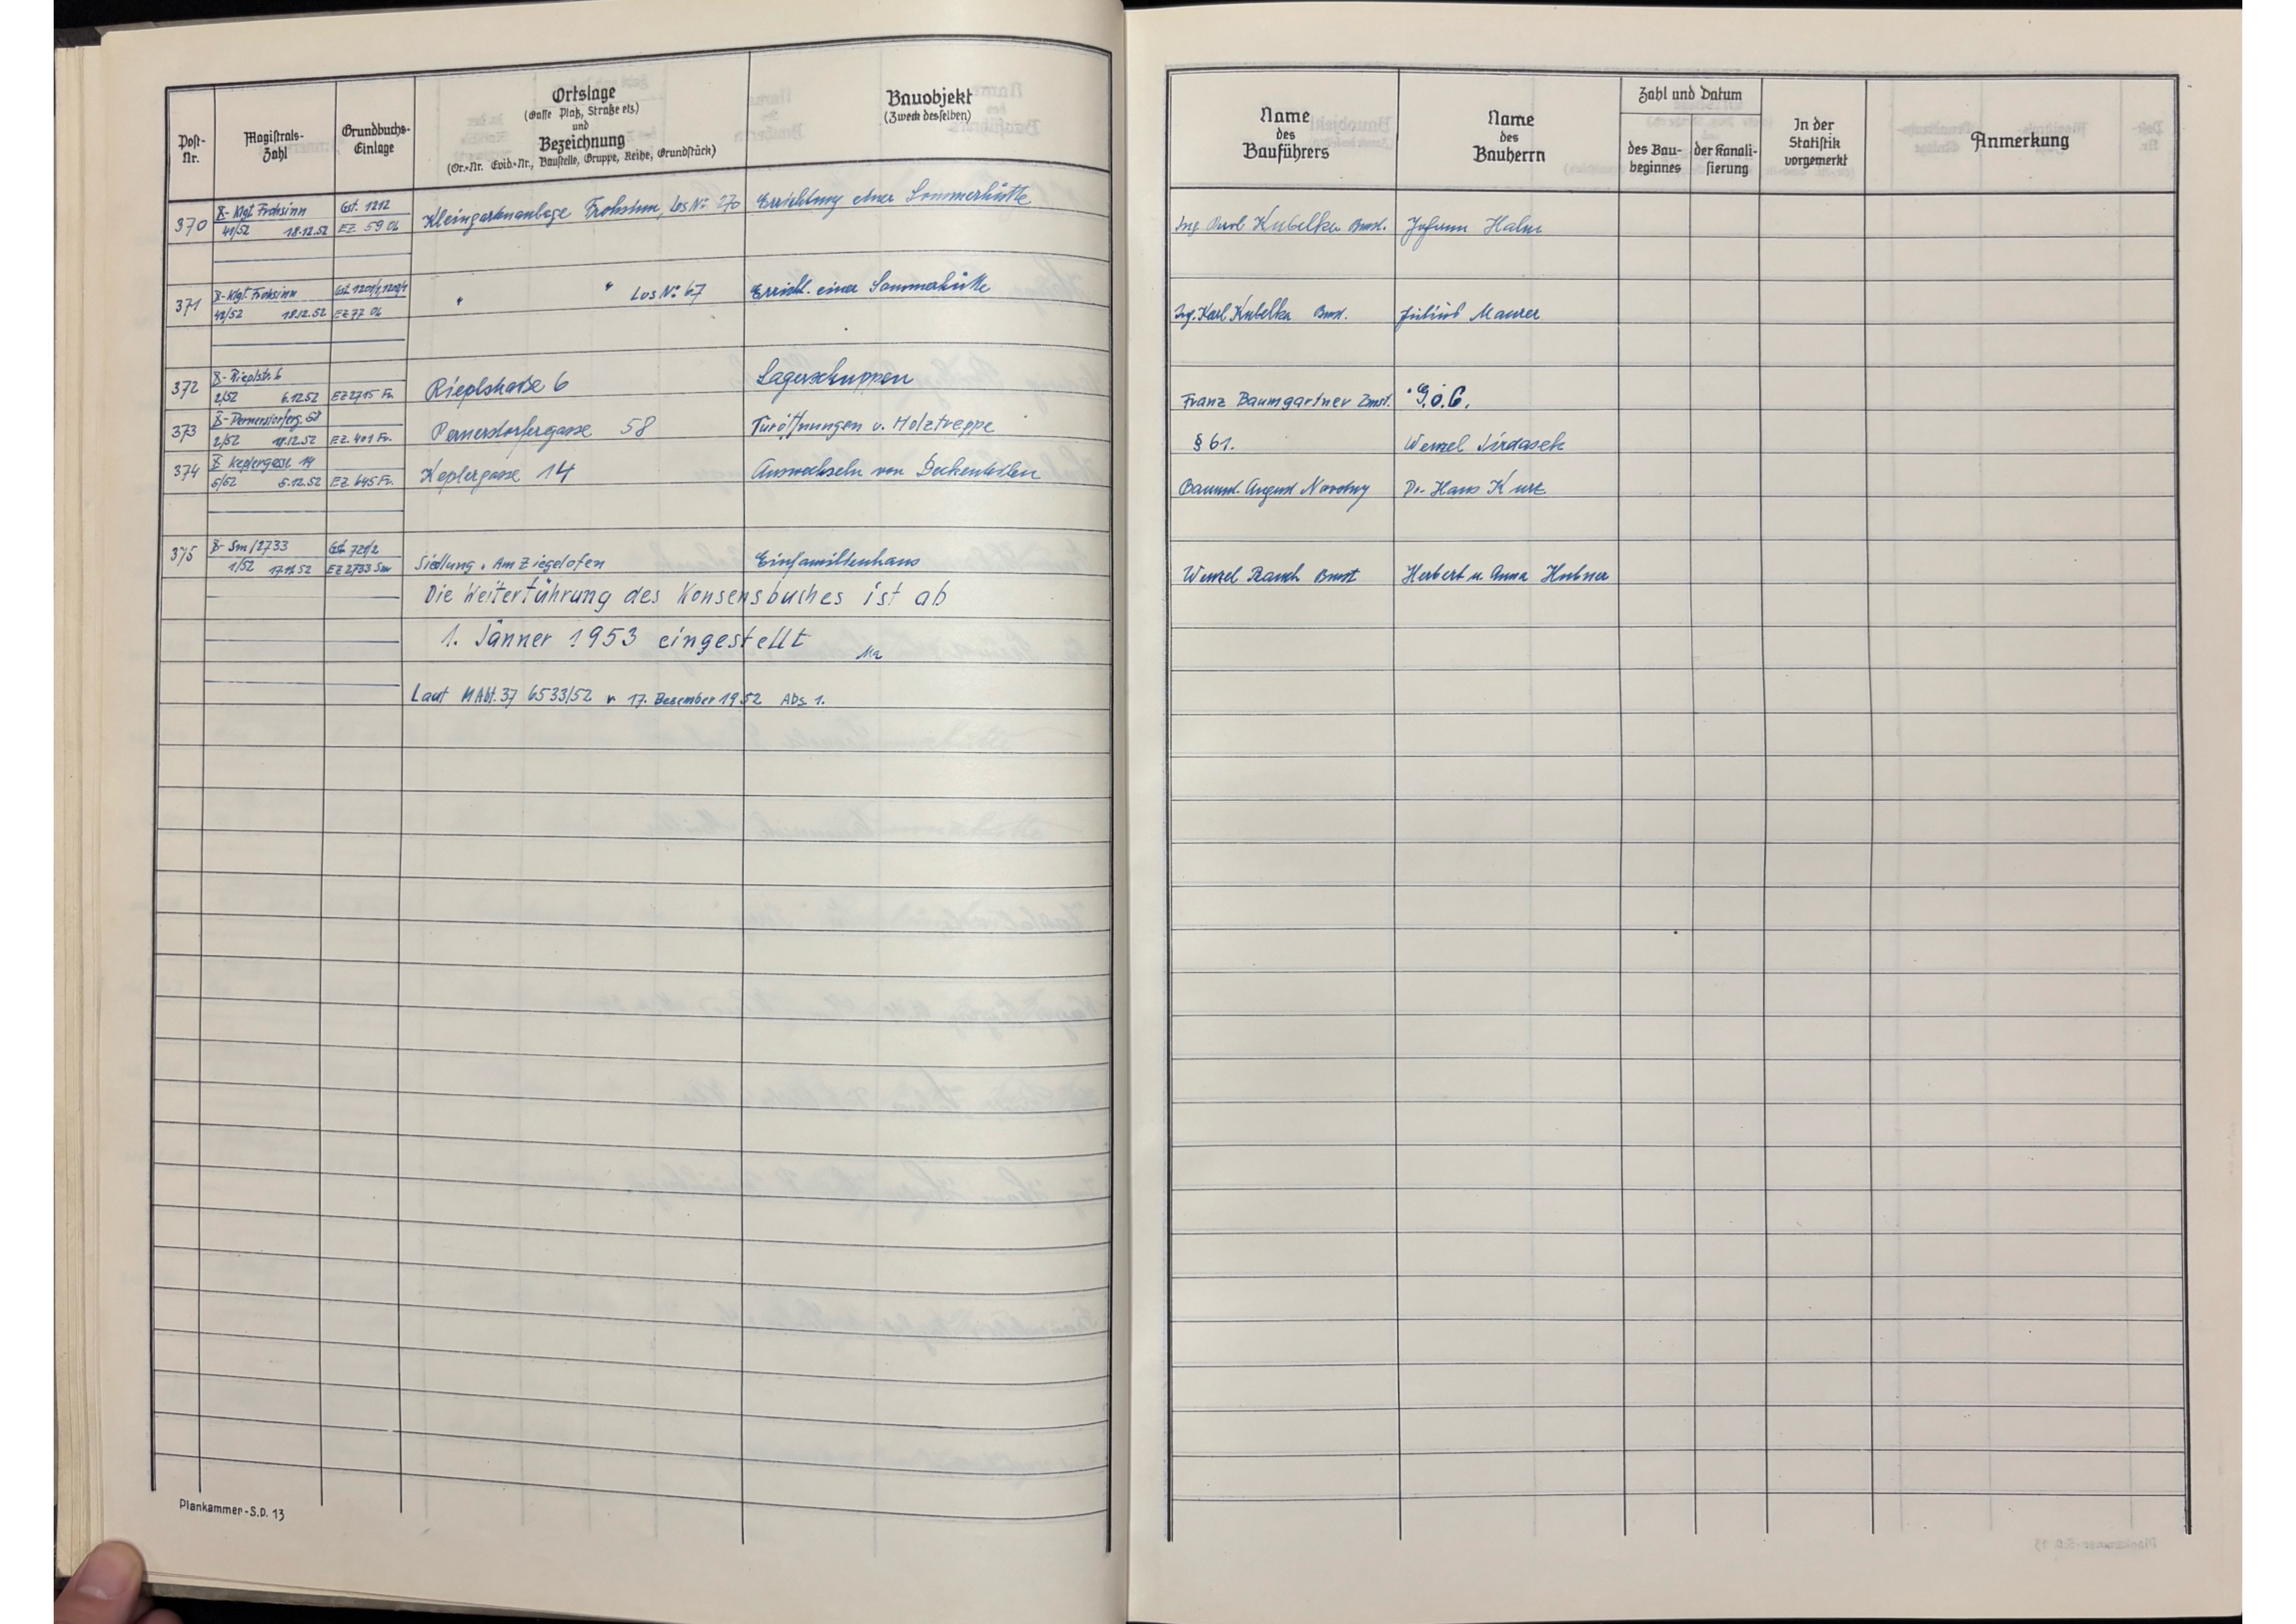 Post-Nr.
Magistrats-Zahl
Grundbuchs-Einlage
Ortslage
(Gasse Platz, Straße etz.)
und
Bezeichnung
(Or.-Nr. Evid.-Nr., Baustelle, Gruppe, Reihe, Grundstück)
Bauobjekt
(Zweck desselben)
Name
des
Bauführers
Name
des
Bauherrn
Zahl und Datum
des Bau-
beginnes
der Kanali-
sierung
In der
Statistik
vorgemerkt
Anmerkung
X- Klgt Frohsinn Gst. 1212
370 41/52 18.12.52 EZ. 5906 Kleingartenanlage Frohsinn, Los No 270 Errichtung einer Sommerhütte Ing Karl Kubelka Bmst. Johann Hahn
X- Klgt. Frohsinn
371 42/52 18.12.52 EZ 77 06 " " Los No 67 Erricht. einer Sommerhütte Ing. Karl Kubelka Bmst. Julius Maurer
X- Rieplstr. 6
372 2/52 6.12.52 EZ 2715 Fv. Rieplstraße 6 Lagerschuppen Franz Baumgartner Zmst. G.ö.C.
X- Pernerstorferg. 58
373 2/52 11.12.52 EZ. 401 Fv. Pernerstorfergasse 58 Türöffnungen u. Holztreppe § 61. Wenzel
X Keplergasse 14
374 5/52 5.12.52 EZ. 645 Fv. Keplergasse 14 Auswechseln von Deckenteilen Baumst. August Novotny Dr. Hans Kurz
X- Sm/2733 Gst. 721/2
375 1/52 17.12.52 EZ 2733 Sm Siedlung „Am Ziegelofen Einfamilienhaus Wenzel Rauch Bmst Herbert u. Anna Hubner
Die Weiterführung des Konsensbuches ist ab
1. Jänner 1953 eingestellt
Ma
Laut MAbt. 37 6533/52 v. 17. Dezember 1952 Abs. 1.
Plankammer-S.D. 13